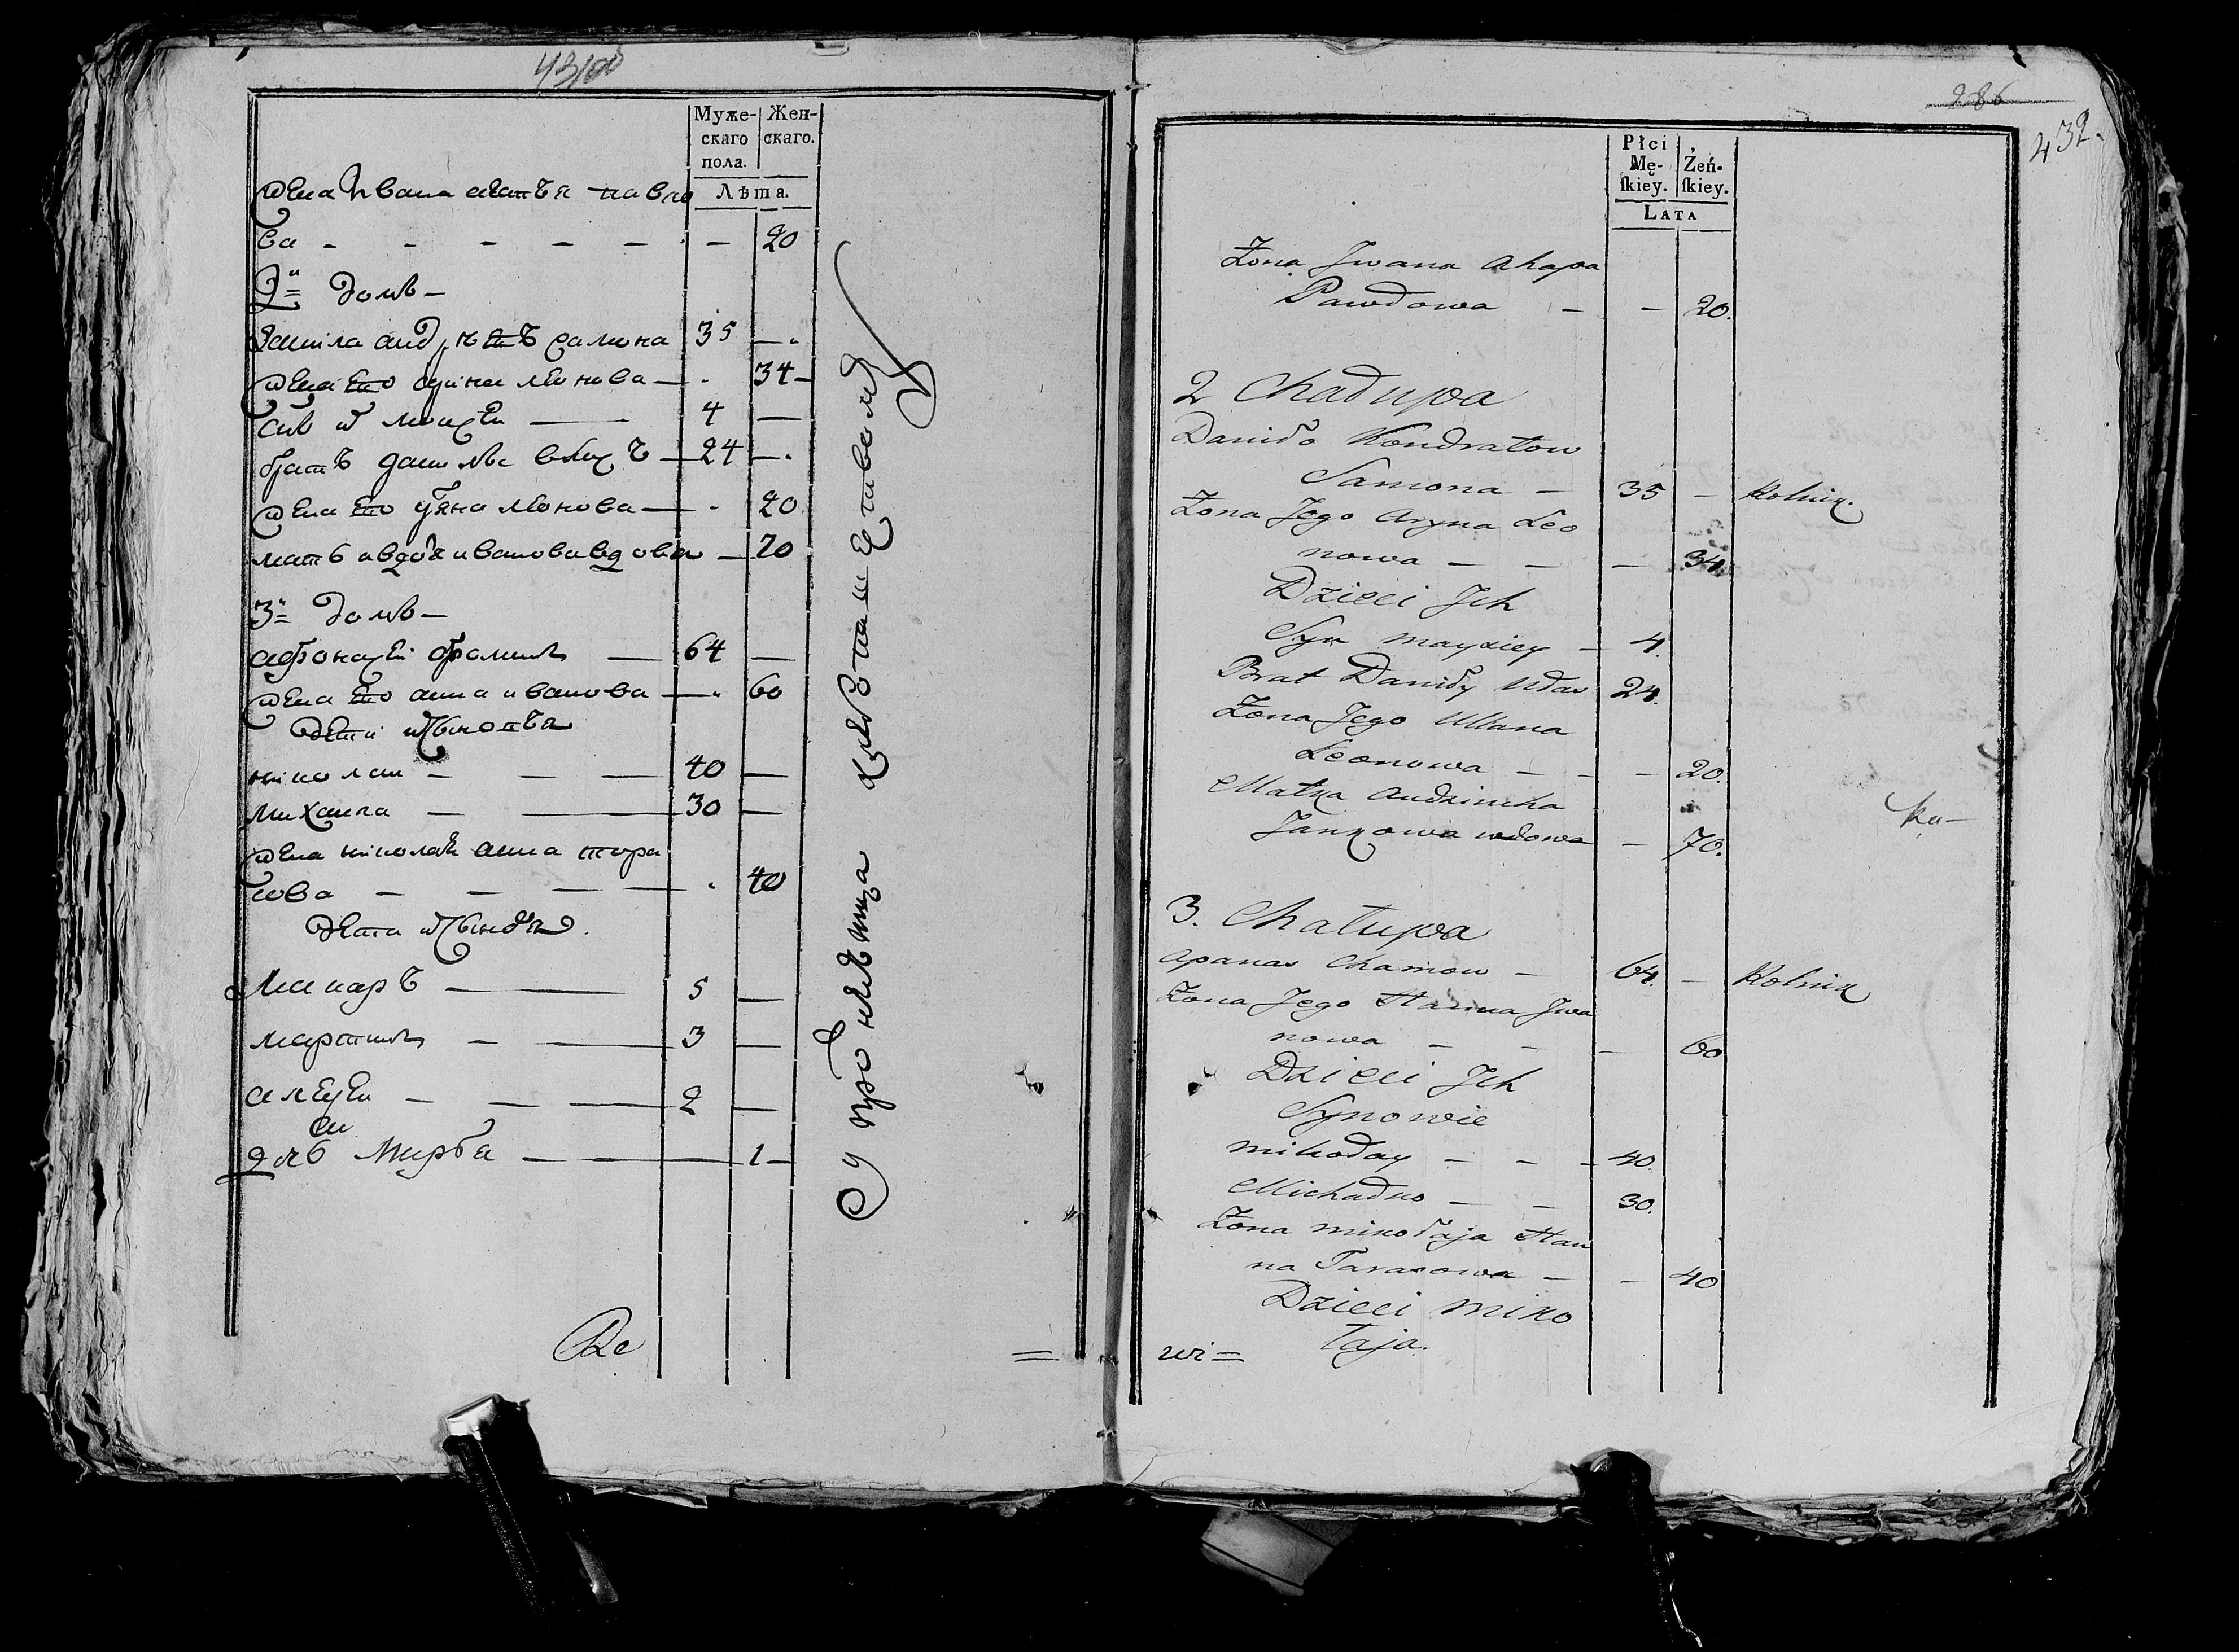 43100
Муже- Жен-
скаго скаго.
пола.
Лѣта.
жена Ивана агапъя павло
ва - - - - - - 20
2й домъ -
данила андрѣевъ самона 35 -
жена его орина леонова - 34 -
сынъ их моисеи — 4 —
братъ данилы власъ — 24 -
жена его уляна леонова — 20
мать авдотя иванова вдова — 70
3й домъ -
афонасеи фоминъ — 64 —
жена его анна иванова — 60
дети их сыновья
николаи - — — 40 —
михаила - — 30 —
жена николая анна тара
сова - — — — 40
дети их сыновья
Макаръ — 5 —
мартинъ - — 3 —
алексеи - — — 2 —
дочь Марфа — 1 -
286
432.
Płci
Mę- Żeń-
skiey. skiey.
LATA
Żona Jwana Ahapa
Pawłowa - - 20.
2 Chałupa
Daniło Kondratow
Samona - 35 - Rolnik.
Żona Jego Aryna Leo
nowa - - - 34.
Dzieci Jch
Syn mayziey - 4.
Brat Daniły Ułas 24.
Żona Jego Ullana
Leonowa - - - 20.
Matka Audzincha
Jankowa wdowa - 70.
Ra-
3. Chałupa
Apanas Chamow - 64. - Rolnik
Żona Jego Hanna Jwa
nowa - - - 60
Dzieci Jch
Synowie
mikołay - - - 40.
Michałko - - 30.
Żona mikołaja Han
na Tarasowa - - 40
Dzieci miko
łaja.
wi=